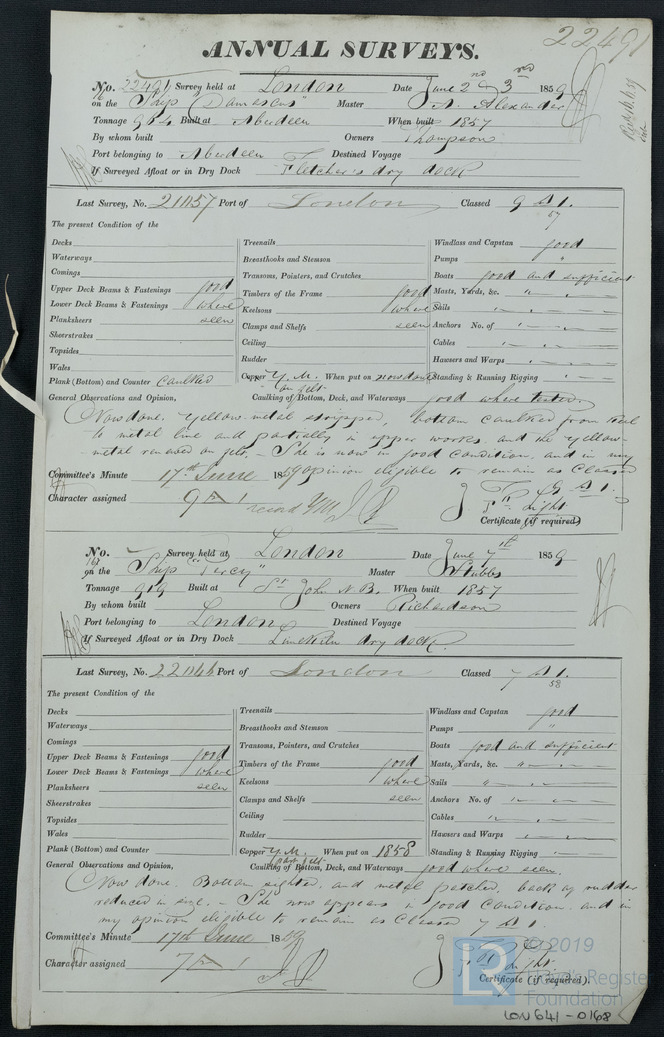 22491
ANNUAL SURVEYS.
No. 22491 Survey held at London Date June 2nd & 3rd 1859
on the Ship "Damascus" Master A. Alexander
Tonnage 964 Built at Aberdeen When built 1857
By whom built Owners Thompson
Port belonging to Aberdeen Destined Voyage
If Surveyed Afloat or in Dry Dock Fletcher's dry dock
Last Survey, No. 21057 Port of London Classed 9 A 1.
57
The present Condition of the
Decks Treenails Windlass and Capstan good
Waterways Breasthooks and Stemson Pumps "
Comings Transoms, Pointers, and Crutches Boats good and sufficient
Upper Deck Beams & Fastenings good Timbers of the Frame good Masts, Yards, &c. "
Lower Deck Beams & Fastenings where Keelsons where Sails "
Planksheers seen Clamps and Shelfs seen Anchors No. of "
Sheerstrakes Ceiling Cables "
Topsides Rudder Hawsers and Warps "
Wales Copper Y.M. When put on now done Standing & Running Rigging "
on felt
Plank (Bottom) and Counter Caulked Caulking of Bottom, Deck, and Waterways good where tested
General Observations and Opinion,
Now done. Yellow metal stripped, bottom caulked from keel
to metal line and partially in upper works, and the yellow
metal renewed on felt, - She is now in good condition, and in my
Committee's Minute 17th June 1859 opinion eligible to remain as Classed
9 A 1.
Character assigned 9 A 1 record YM
Certificate (if required)
No. Survey held at London Date June 7th 1859
on the Ship "Percy" Master Stubbs
Tonnage 919 Built at St. John N.B. When built 1857
By whom built Owners Richardson
Port belonging to London Destined Voyage
If Surveyed Afloat or in Dry Dock Limekiln dry dock.
Last Survey, No. 22046 Port of London Classed 7 A 1.
58
The present Condition of the
Decks Treenails Windlass and Capstan good
Waterways Breasthooks and Stemson Pumps "
Comings Transoms, Pointers, and Crutches Boats good and sufficient
Upper Deck Beams & Fastenings good Timbers of the Frame good Masts, Yards, &c. "
Lower Deck Beams & Fastenings where Keelsons where Sails "
Planksheers seen Clamps and Shelfs seen Anchors No. of "
Sheerstrakes Ceiling Cables "
Topsides Rudder Hawsers and Warps "
Wales Copper Y.M. When put on 1858 Standing & Running Rigging "
felt
Plank (Bottom) and Counter Caulking of Bottom, Deck, and Waterways good where seen.
General Observations and Opinion,
Now done. Bottom sighted, and metal patched, back of rudder
reduced in size. - She now appears in good Condition, and in
my opinion eligible to remain as Classed 7 A 1.
Committee's Minute 17th June 1859
Character assigned 7 A 1
Certificate (if required).
LR © 2019
Lloyd's Register
Foundation
LON641-0168